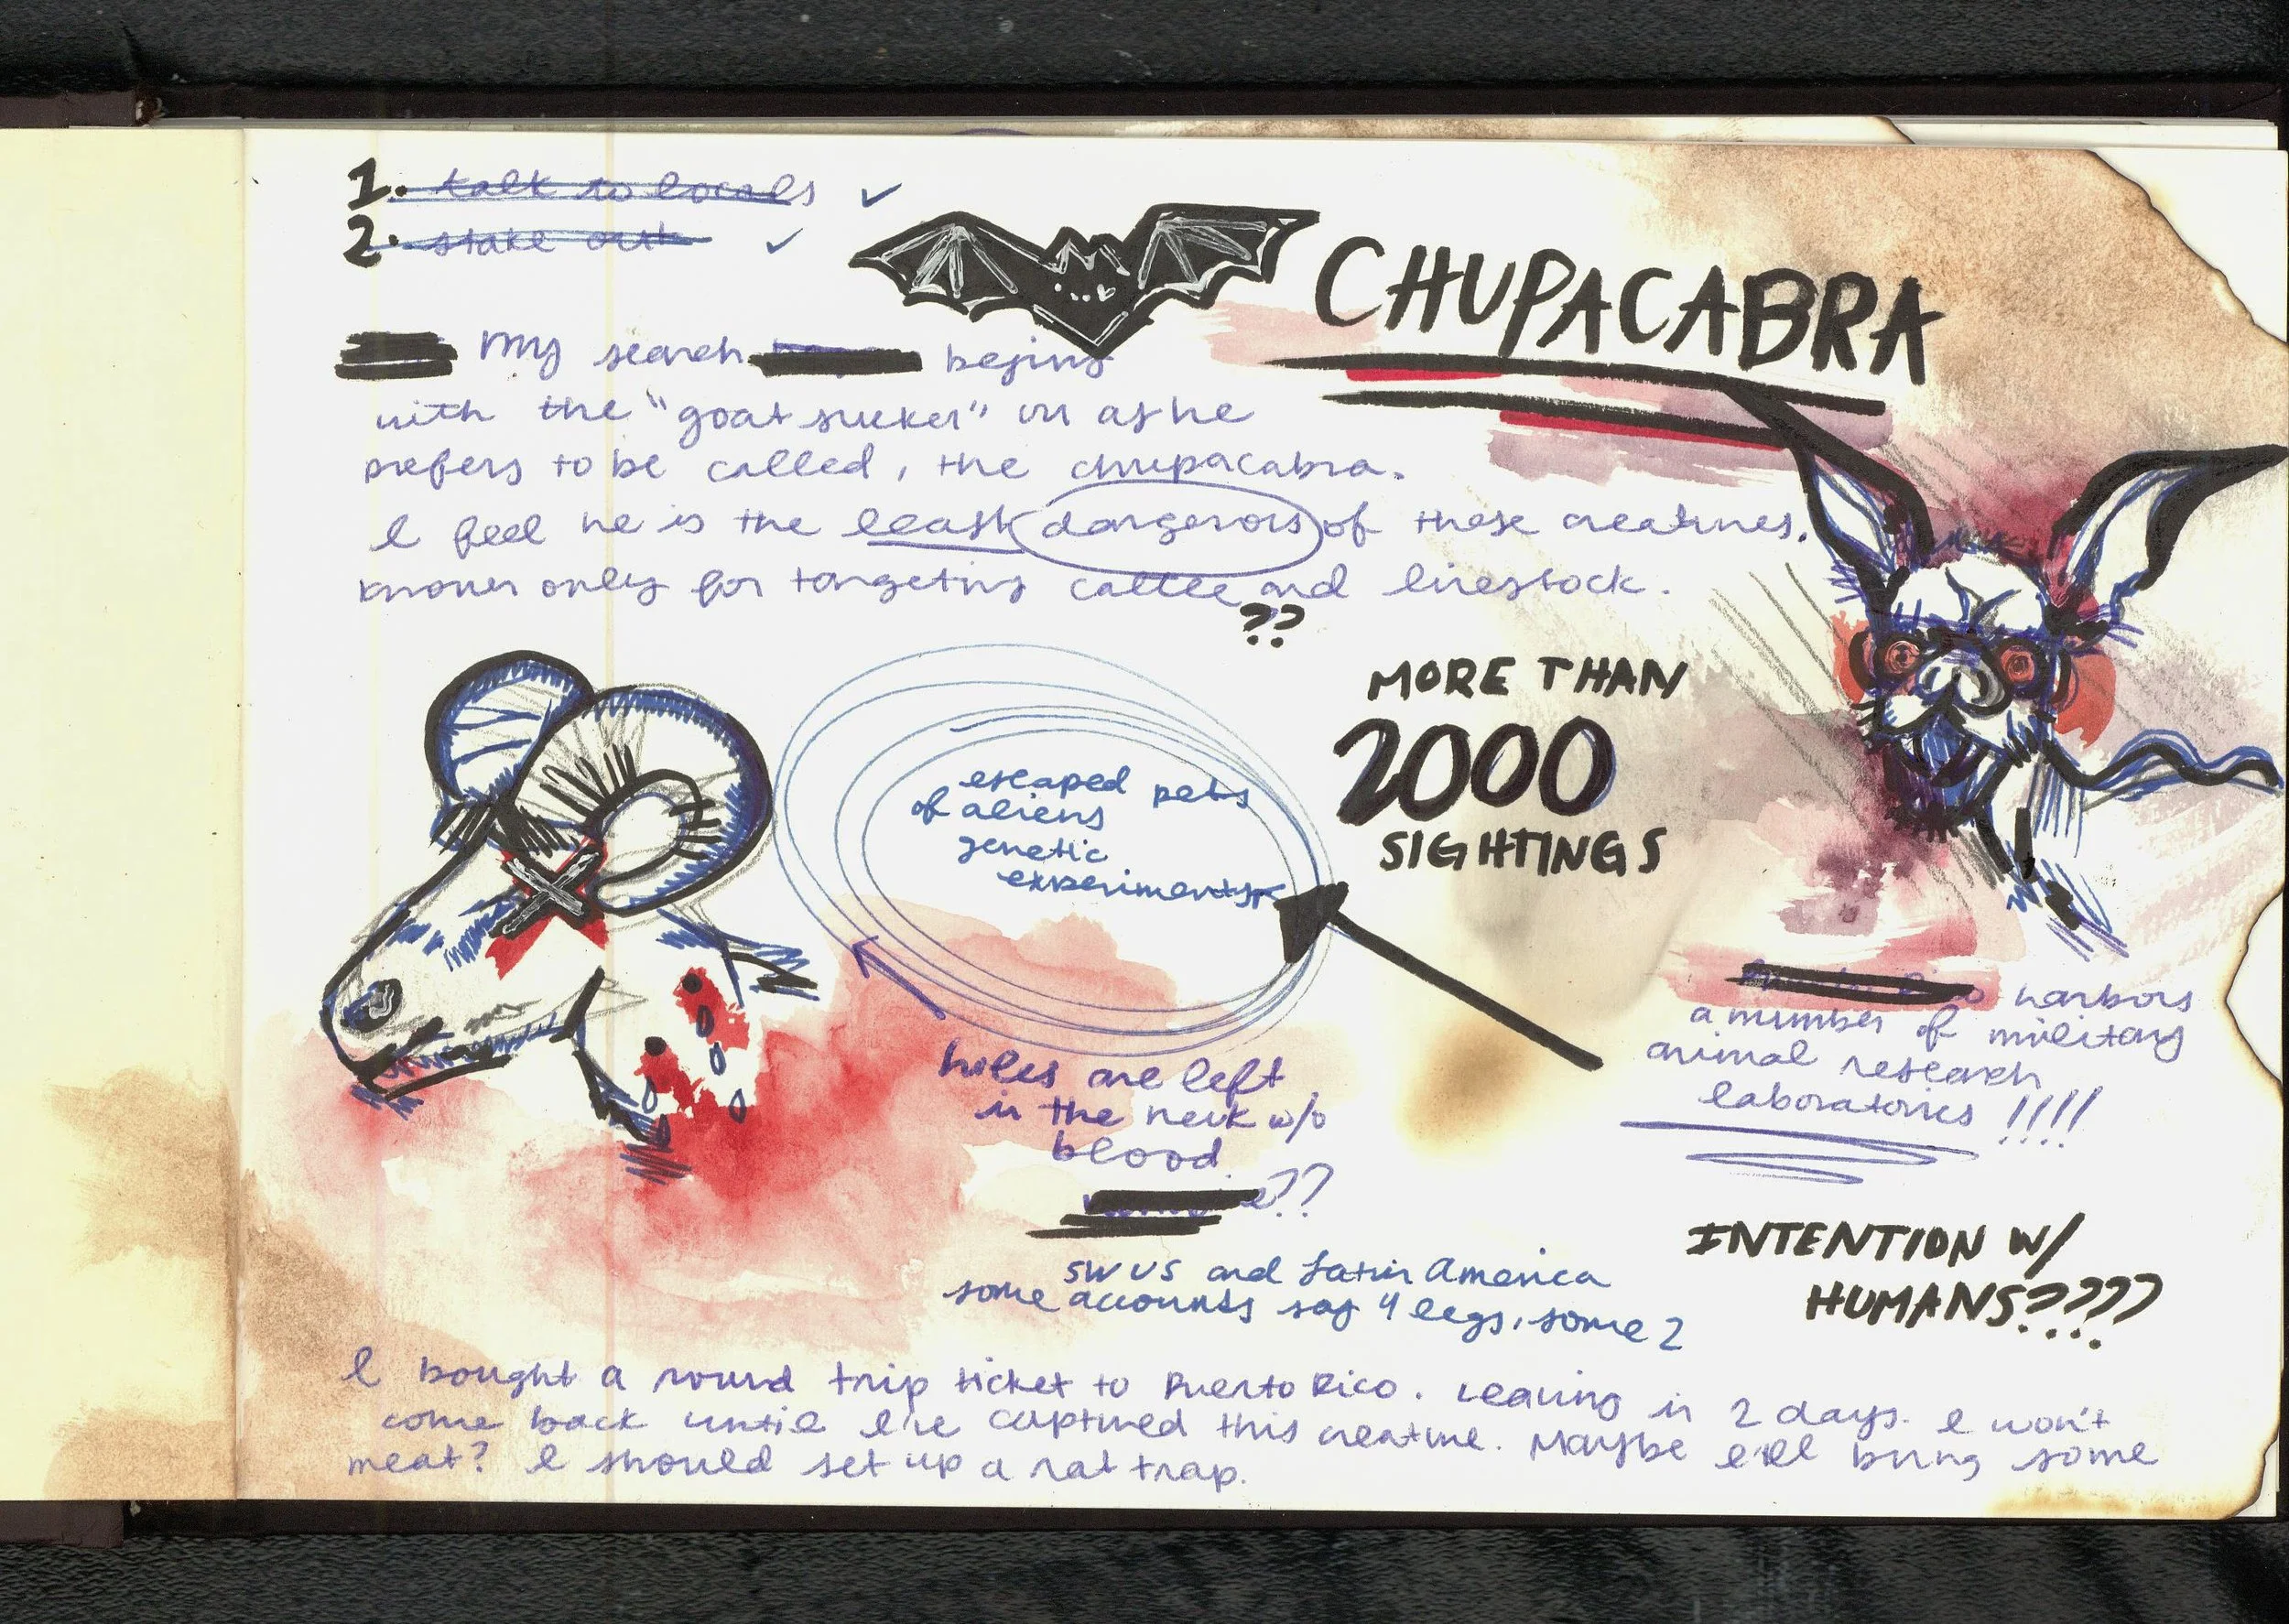 1. talk to locals ✓
2. stake out ✓
CHUPACABRA
My search begins
with the "goat sucker" or as he
prefers to be called, the chupacabra.
I feel he is the least dangerous of these creatures.
known only for targeting cattle and livestock.
??
MORE THAN
2000
SIGHTINGS
escaped pets
of aliens
genetic
experiments
harbors
a number of military
animal research
laboratories !!!!
holes are left
in the neck w/o
blood.
??
INTENTION W/
HUMANS????
SW US and Latin America
some accounts say 4 legs, some 2
I bought a round trip ticket to Puerto Rico. Leaving in 2 days. I won't
come back until I've captured this creature. Maybe I'll bring some
meat? I should set up a rat trap.